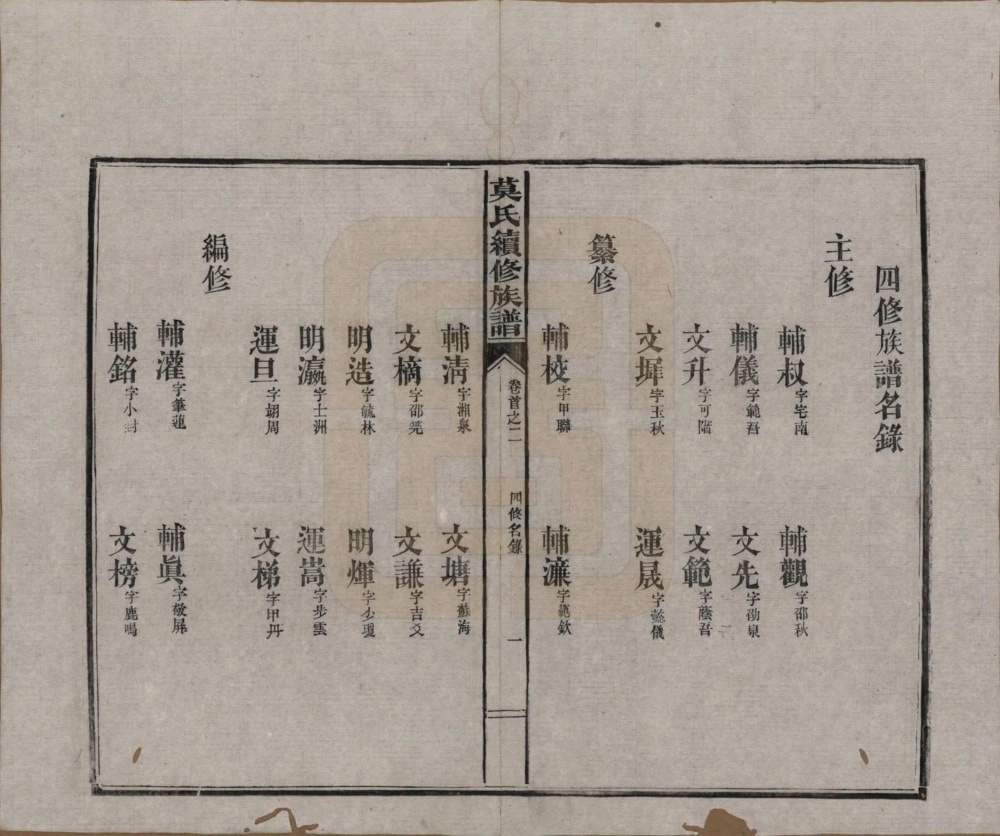 四修族譜名錄
主修
輔叔字宅南 輔觀字邵秋
輔儀字範吾 文先字劭泉
文升字可階 文範字蔭吾
文墀字玉秋 運晟字懿儀
纂修
輔校字甲聯 輔濂字範欽
莫氏續修族譜 卷首之二 四修名錄 一
輔清字湘泉 文塘字蘇海
文樀字邵 文謙字吉爻
明造字毓林 明煇字少瓊
明瀛字士洲 運嵩字步雲
運旦字翊周 文梯字甲丹
編修
輔灌字筆蓮 輔眞字敬屏
輔銘字小封 文榜字鹿鳴